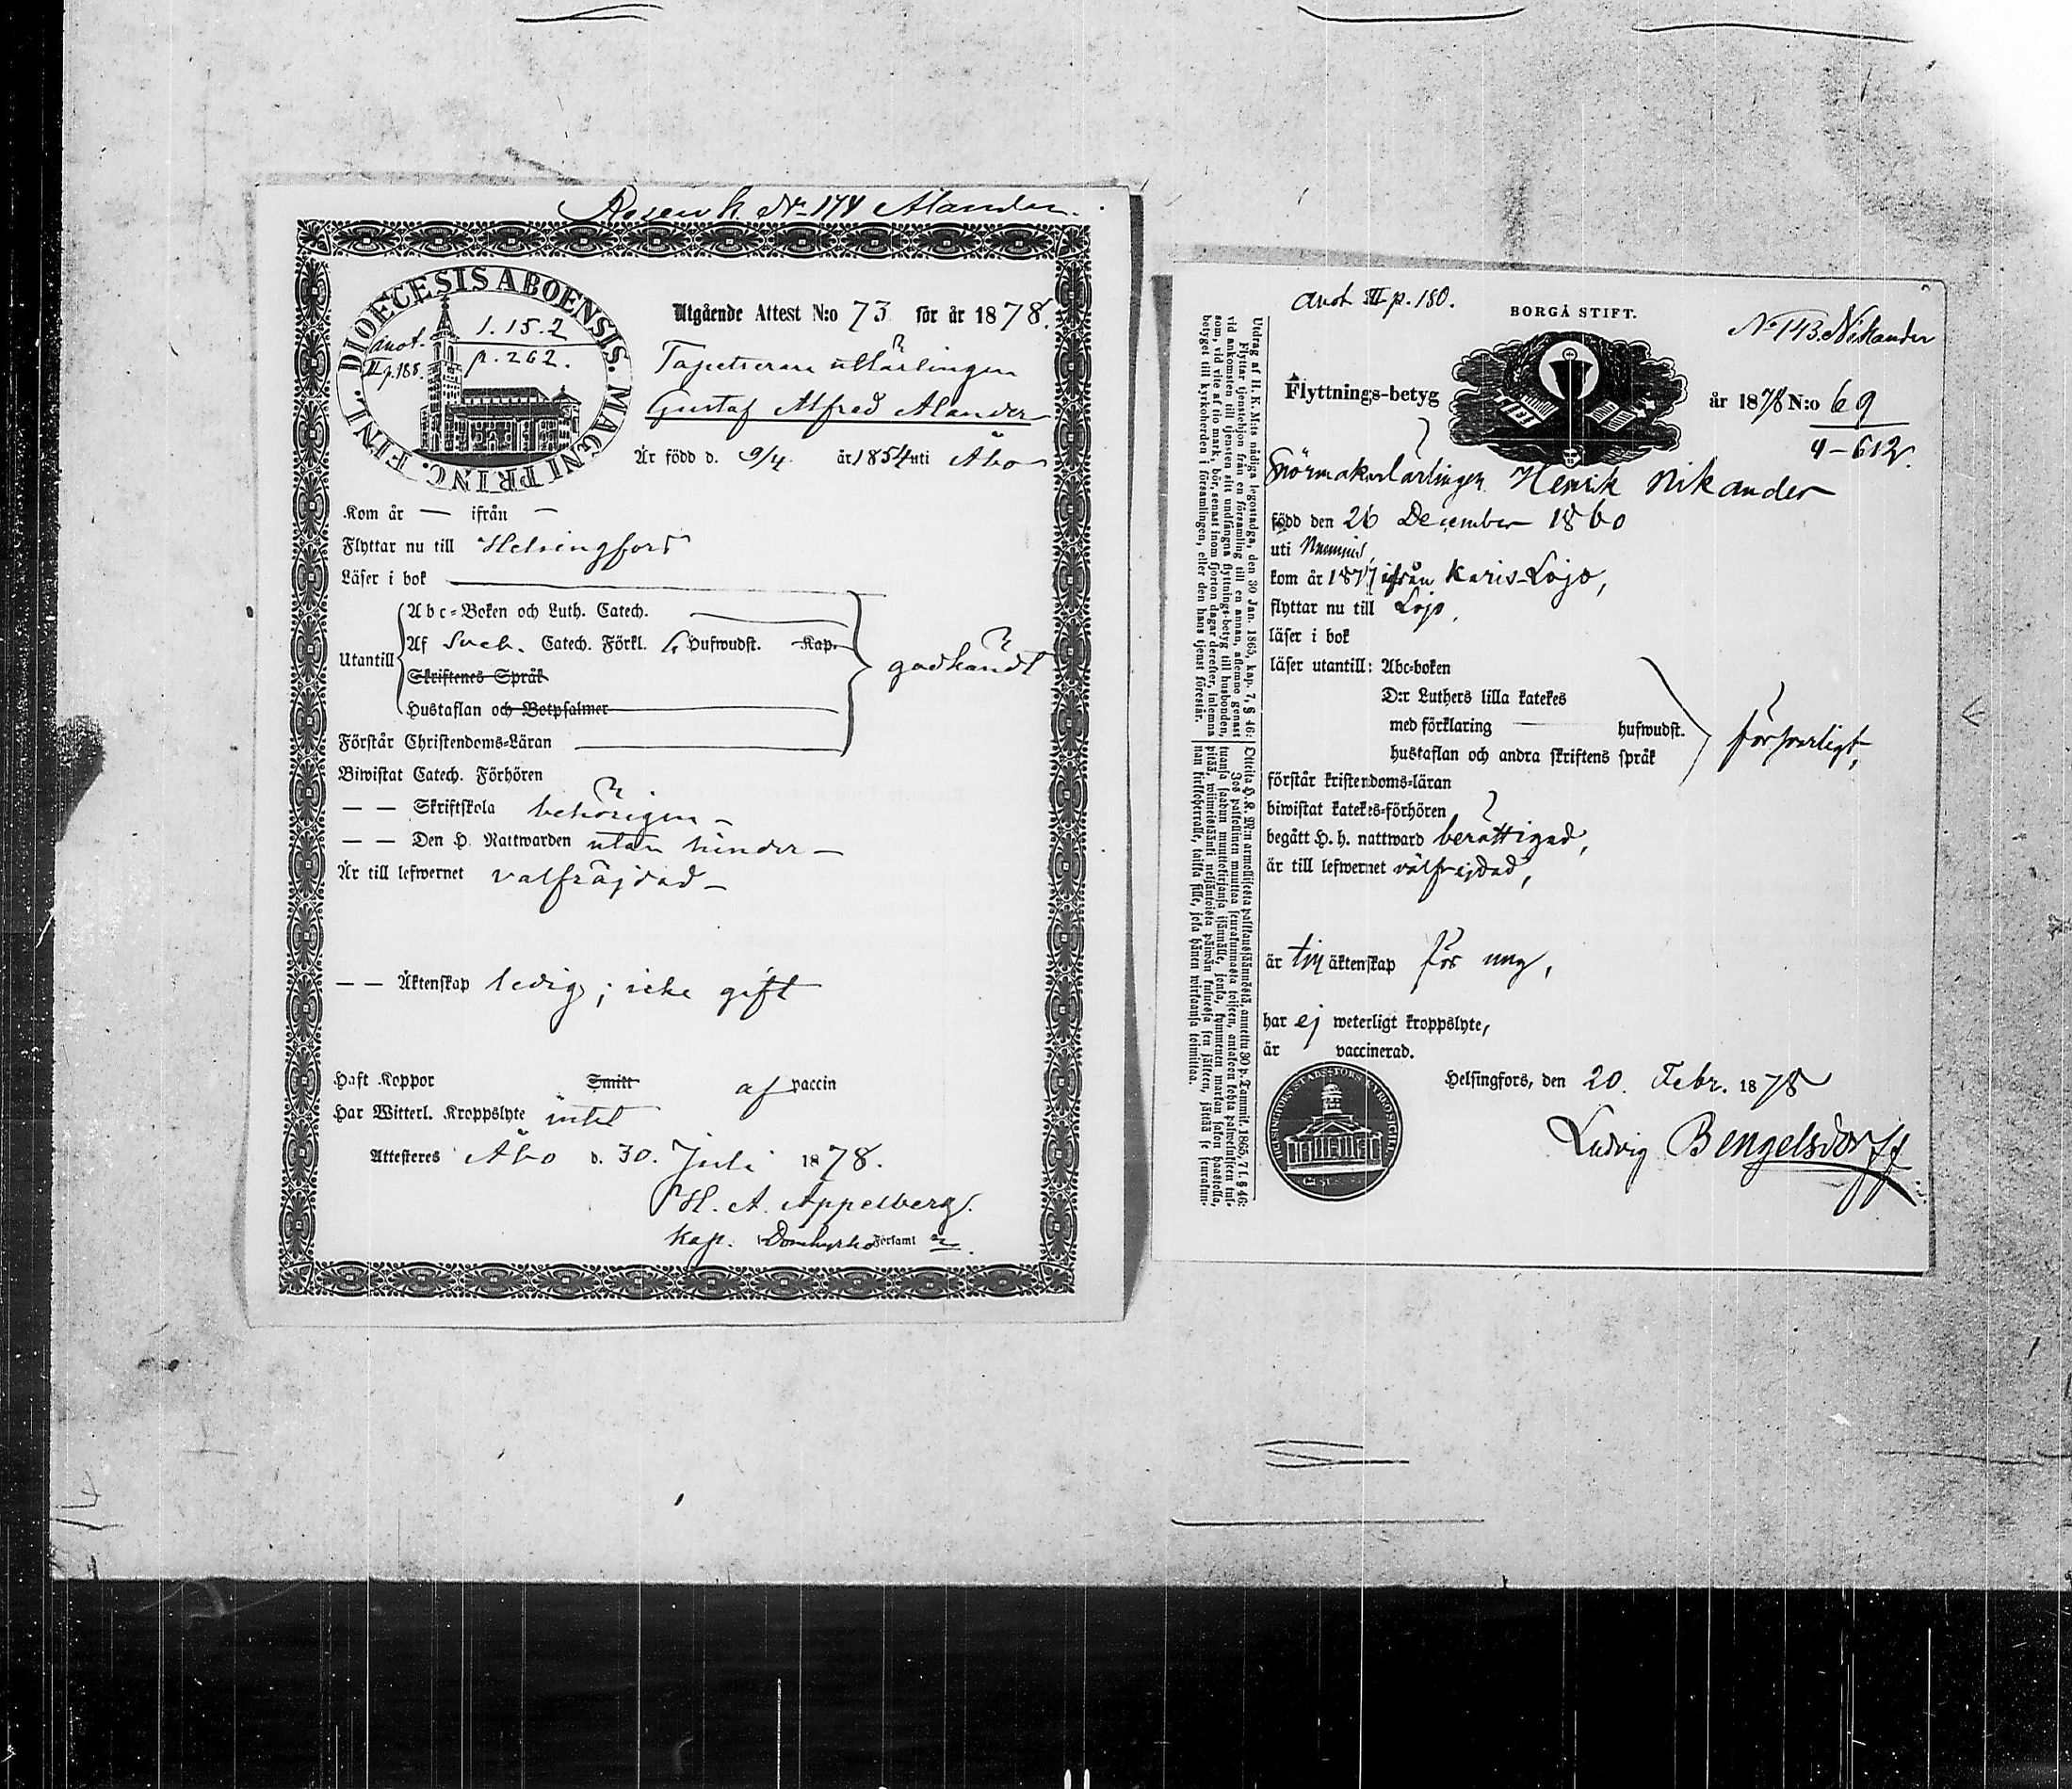 Rosenk. No 174 Ålander.
DIOECESIS ABOENSIS. MAGNI PRINC. FINL.
anot. II p. 188.
1. 15. 2
p. 262.
Utgående Attest N:o 73 för år 1878.
Tapetserare utlärlingen
Gustaf Alfred Alander
Är född d. 9/4. år 1854 uti Åbo
Kom år — ifrån —
Flyttar nu till Helsingfors
Läser i bok
Utantill
Abc-Boken och Luth. Catech.
Af Sveb. Catech. Förkl. 6 Hufwudst. Kap.
Skriftenes Språk
Hustaflan och Botpsalmer
godkändt
Förstår Christendoms-Läran
Biwistat Catech. Förhören
— — Skriftskola behörigen —
— — Den H. Nattwarden utan hinder —
Är till lefwernet välfräjdad —
— — Äktenskap ledig; icke gift
Haft Koppor Smitt af vaccin
Har Witterl. Kroppslyte intet
Attesteres Åbo d. 30. Juli 1878.
H. A. Appelberg.
Kap. i Domkyrko Församl
anot III p. 180.
BORGÅ STIFT.
No 143. Nikander
Flyttnings-betyg år 1878 N:o 69
4-612.
Snörmakarlärlingen Henrik Nikander
född den 26 December 1860
uti Nummis,
kom år 1877 ifrån Karis-Lojo,
flyttar nu till Lojo,
läser i bok
läser utantill: Abc-boken
D:r Luthers lilla katekes
med förklaring — hufwudst.
hustaflan och andra skriftens språk
försvarligt,
förstår kristendoms-läran
biwistat katekes-förhören
begått H. h. nattward berättigad,
är till lefwernet välfrejdad,
är till äktenskap för ung,
har ej weterligt kroppslyte,
är vaccinerad.
Helsingfors, den 20. Febr. 1878
Ludvig Bengelsdorff
Utdrag af H. K. M:ts nådiga legostadga, den 30 Jan. 1865, kap. 7, § 46:
Flyttar tjenstehjon från en församling till en annan, aflemne genast
vid ankomsten till tjensten sitt undfångna flyttnings-betyg till husbonden,
som, vid vite af tio mark, bör, senast inom fjorton dagar derefter, inlemna
betyget till kyrkoherden i församlingen, eller den hans tjenst förestår.